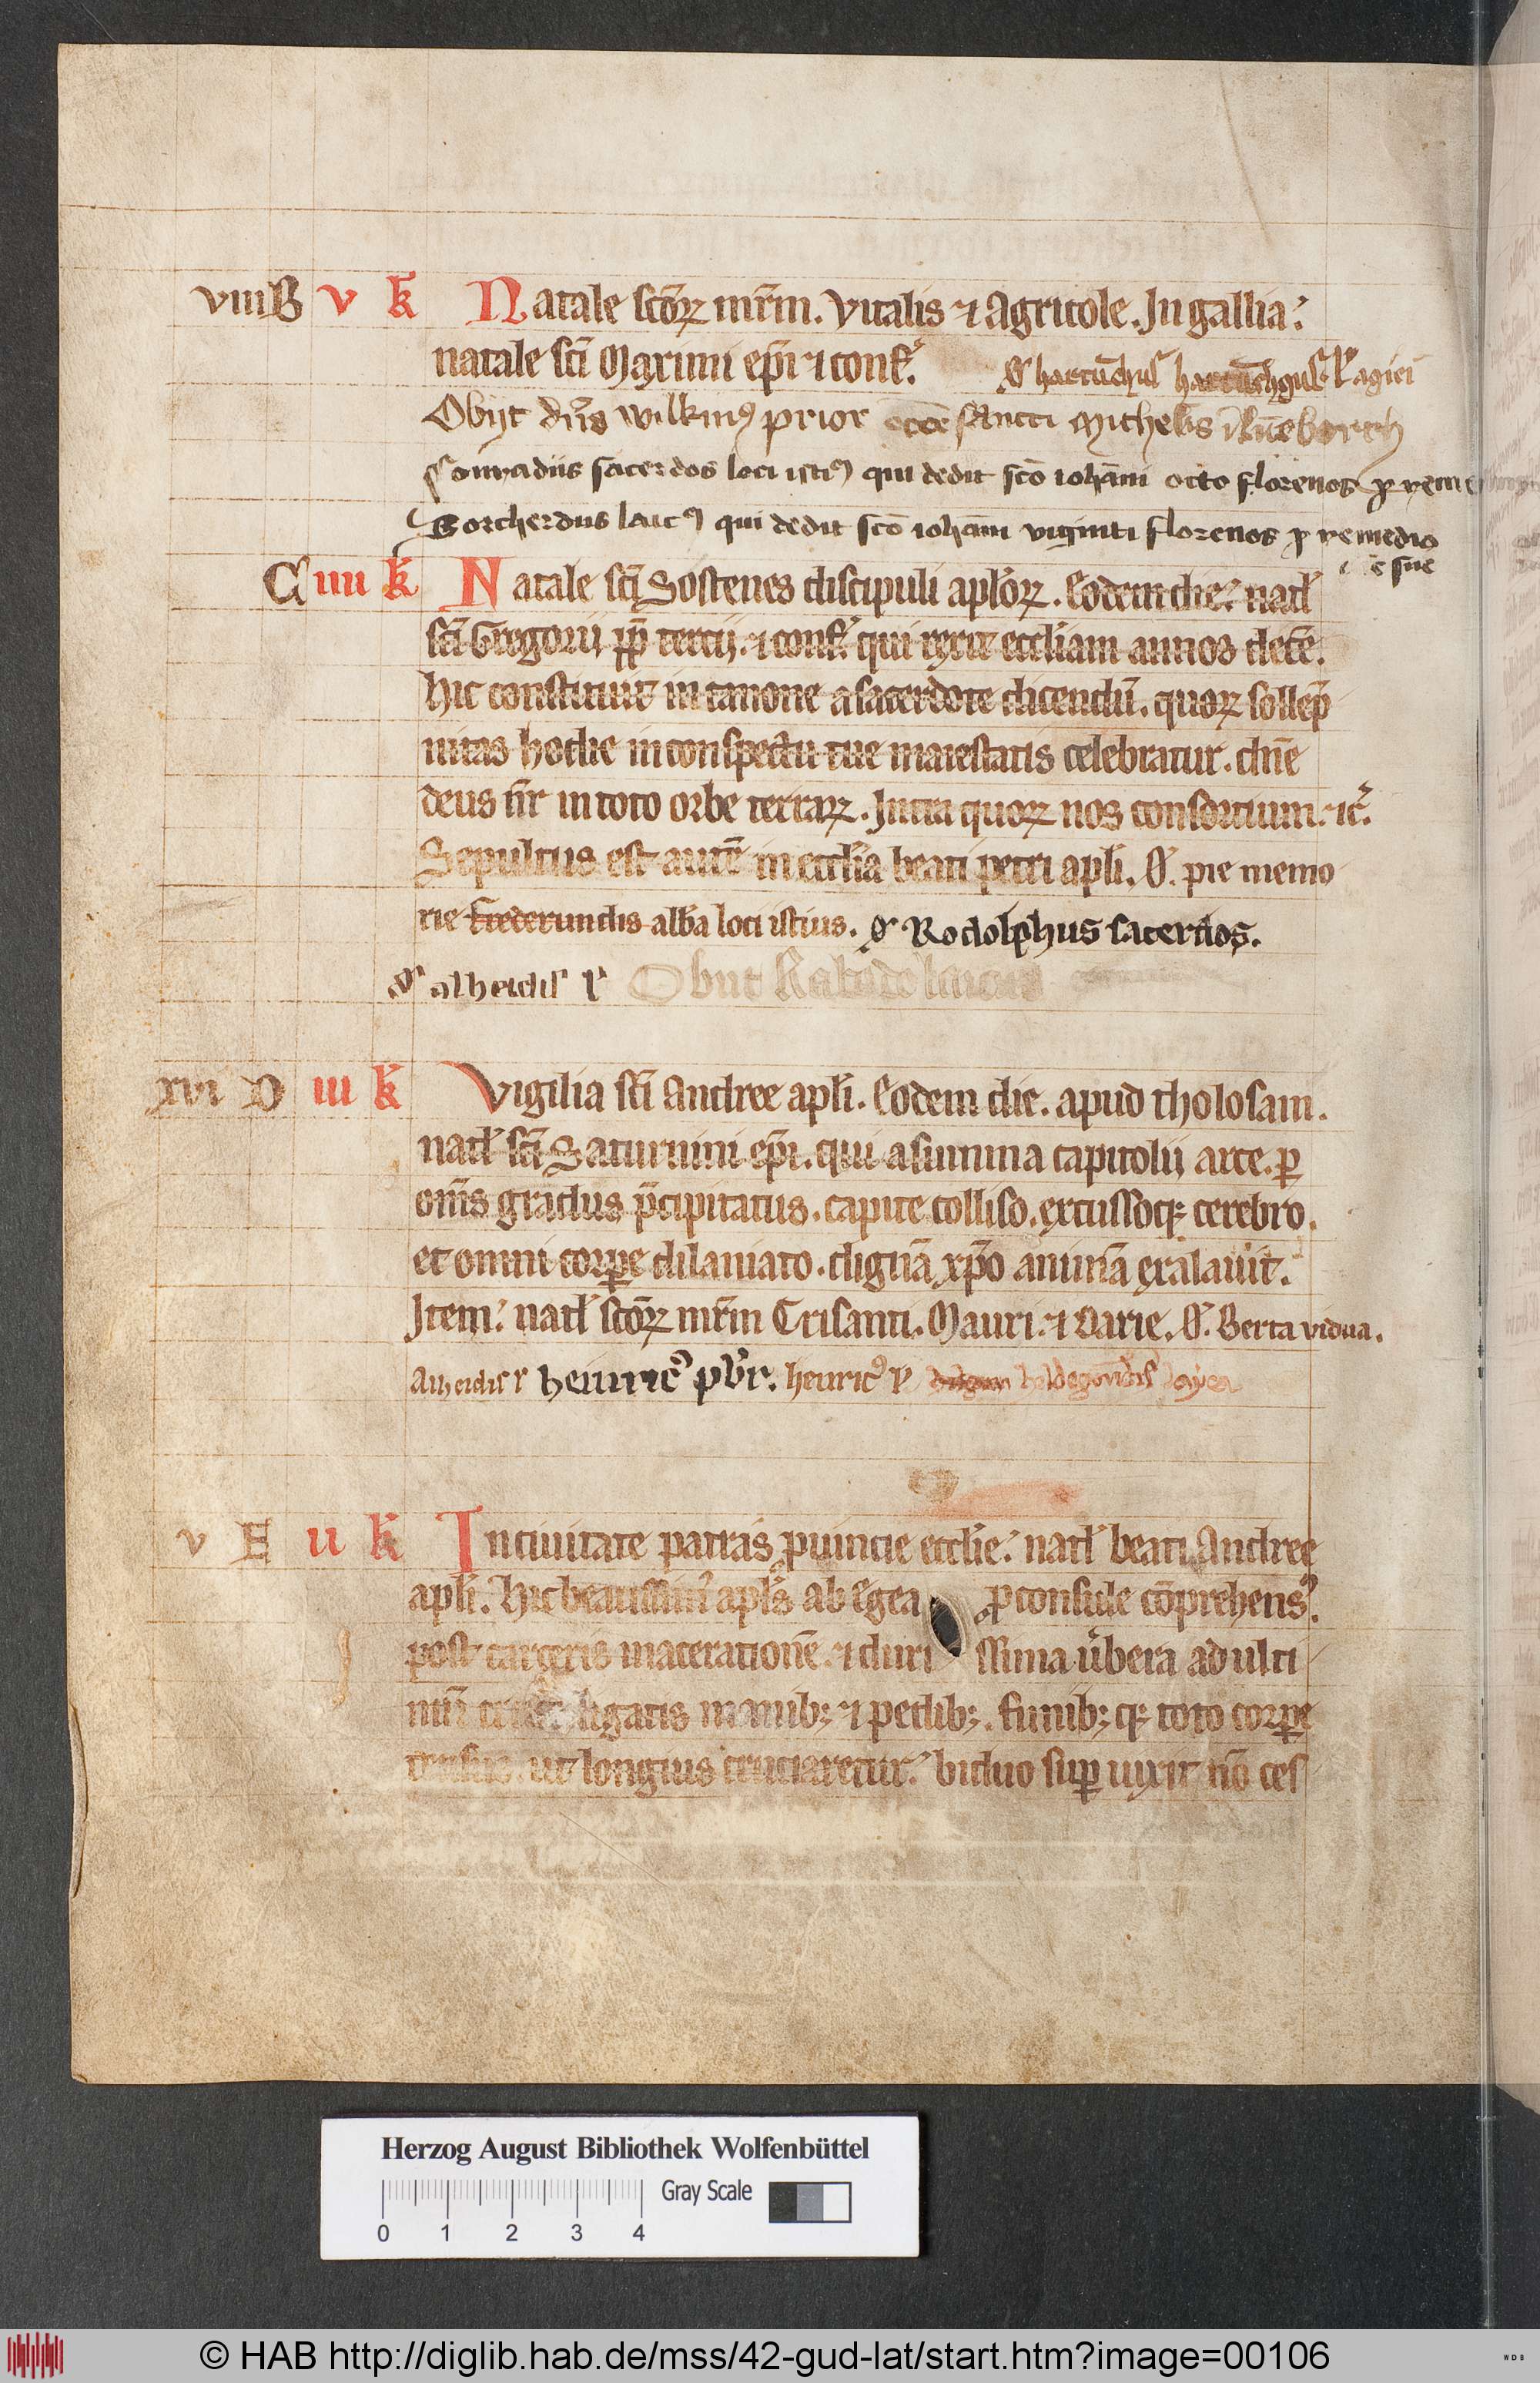 viii B v k̄ Natale sc̄oꝝ mr̄m. Vitalis ⁊ Agricole. In gallia.
natale sc̄i Maximi ep̄i ⁊ conf. hartūchus
Obijt dn̄s wilkinꝰ prior sancti Michelis ī lūeborch
Conradus sacerdos loci istiꝰ qui dedit sc̄o ioh̄āni octo florenos ꝓ reme
Borcherdus laicꝰ qui dedit sc̄o ioh̄āni viginti florenos ꝓ remedio
sue
C iiii k̄ Natale sc̄i Sostenes discipuli apl̄oꝝ. Eodem die. natl̄
sc̄i Gregorii pp̄ tercij. ⁊ conf. qui rexit eccl̄iam annos decē.
hic constituit in canone a sacerdote dicendū. quoꝝ sollēp
nitas hodie in conspectu tue maiestatis celebratur. dn̄e
deus nr̄ in toto orbe terraꝝ. Intra quoꝝ nos consortium. ⁊c̄.
Sepultus est autē in eccl̄ia beati petri apl̄i. O. pie memo
rie frederundis abb̄a loci istius. O Rodolphus sacerdos.
O alheidis Obiit laicus
xvi D iii k̄ Vigilia sc̄i Andree apl̄i. Eodem die. apud tholosam.
natl̄ sc̄i Saturnini ep̄i. qui a summa capitolii arce. ꝑ
om̄s gradus p̄cipitatus. capite colliso. excussoqꝫ cerebro.
et omni corꝑe dilaniato. dignā xp̄o animā exalauit.
Item. natl̄ sc̄oꝝ mr̄m Crisanti. Mauri. ⁊ Darie. O. Berta vidua.
heinricꝰ pb̄r. henricꝰ
v E ii k̄ In ciuitate patras ꝓuincie eccl̄ie. natl̄ beati Andree
apl̄i. Hic beatissimꝰ apl̄s ab egea ꝓconsule cōprehensꝰ.
post carceris maceratione. ⁊ duri ssima ūbera ad ulti
mū ligatis manibꝫ ⁊ pedibꝫ. funibꝫ qꝫ toto corꝑe
ut longius cruciaretur. biduo suꝑ uixit nō ces
Herzog August Bibliothek Wolfenbüttel
Gray Scale
0 1 2 3 4
© HAB http://diglib.hab.de/mss/42-gud-lat/start.htm?image=00106
WDB